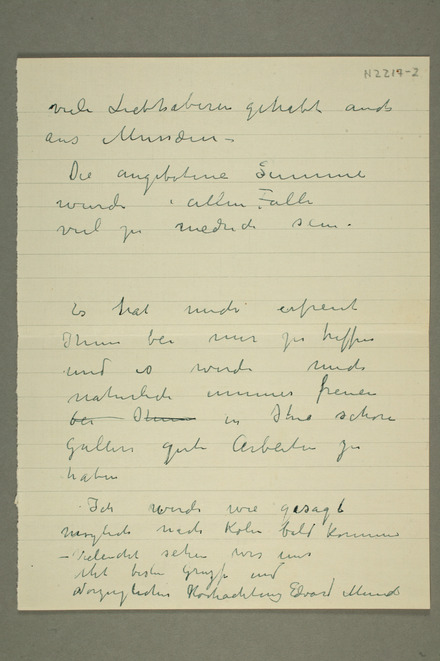 N 2219-2
viele Liebhaberen gehabt auch
aus Museeen –
Die angebotene Summe
wurde allen Falls
viel zu niedrich sein.
Es hat mich erfreut
Ihnen bei mir zu treffen
und es wurde mich
naturlich immer freuen
bei Ihnen in Ihre schone
Gallerie gute Arbeiten zu
haben
Ich werde wie gesagt
moglich nach Koln bald kommen
– Vieleicht sehen wir uns
Mit besten Gruss und
Vorzuglichen Hochachtung Edvard Munch